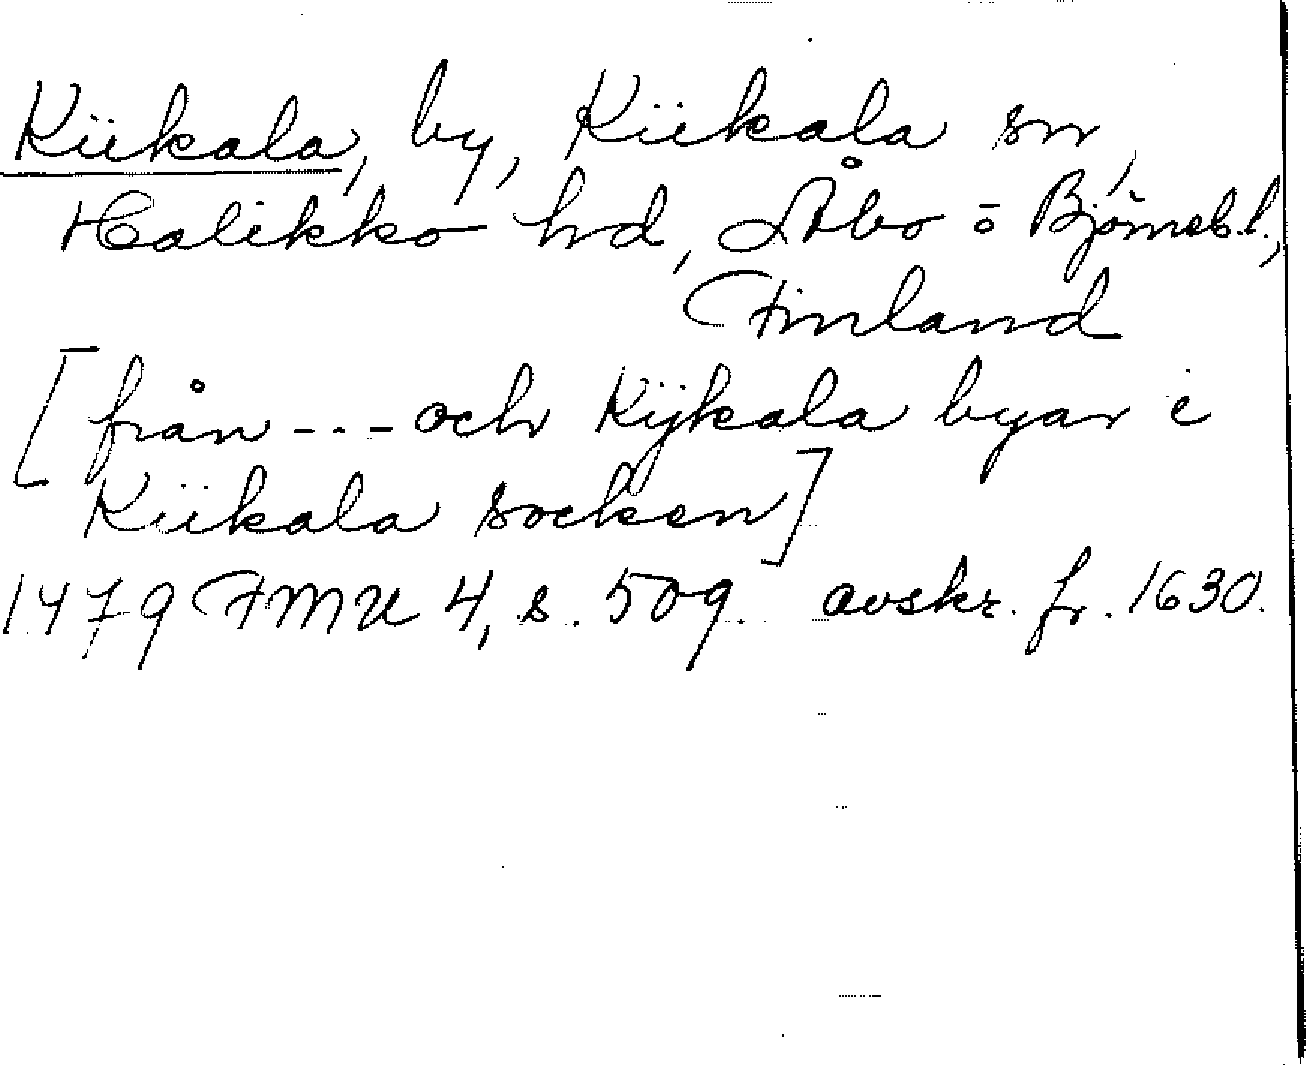 Kiikala, by, Kiikala sn,
Halikko hd, Åbo o Björneb.l.,
Finland
[från --- och Kijkala byar i
Kiikala socken]
1479 FMU 4, s. 509. avskr. fr. 1630.